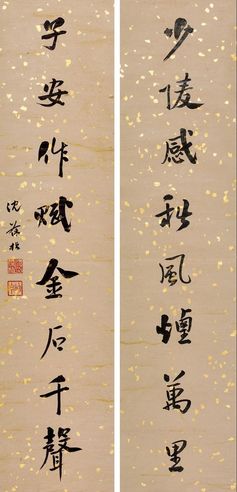 少陵感秋風煙萬里
子安作賦金石千聲
沈葆楨